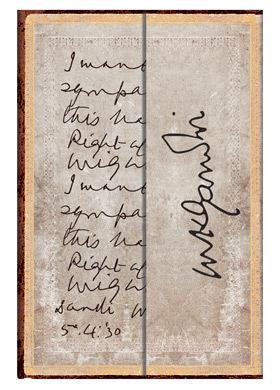 I want
sympa
this ba
Right a
Might
I want
sympa
this ba
Right a
Might
Dandi M
5.4.'30
MKGandhi